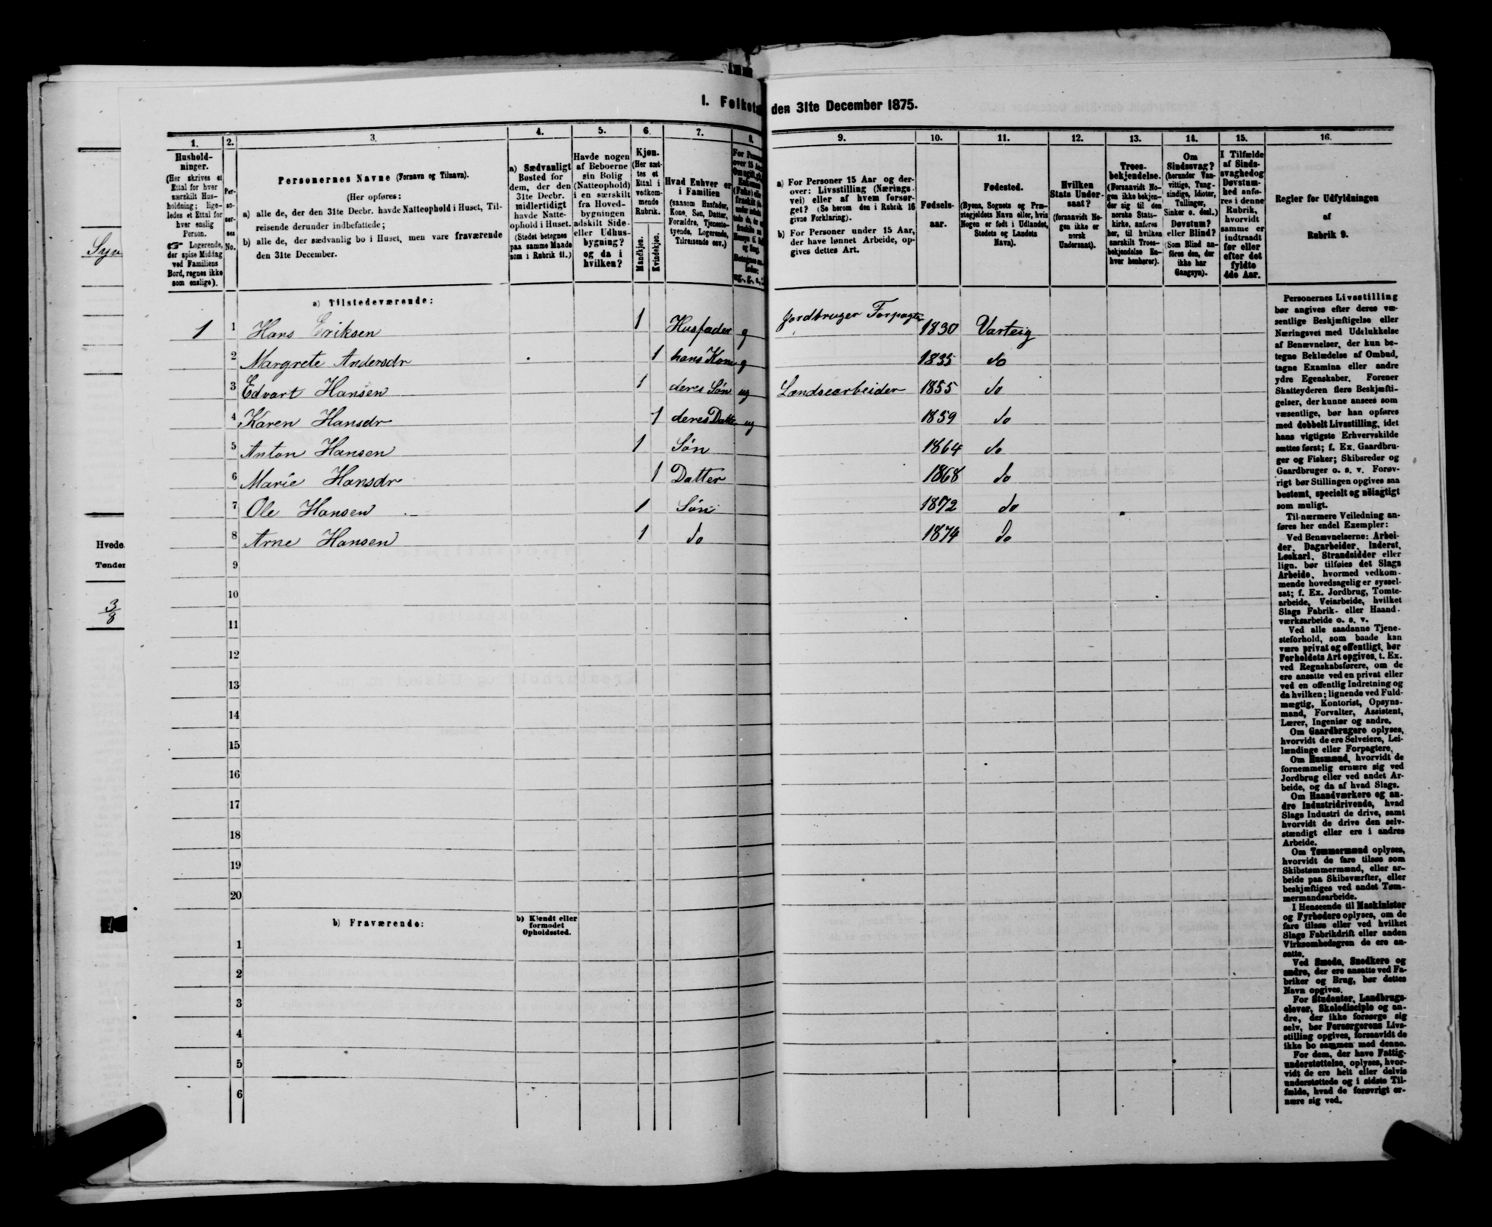 I. Folket
den 31te December 1875.
1.
2.
3.
4.
5.
6.
7.
8.
9.
10.
11.
12.
13.
14.
15.
16.
Hushold-
ninger.
(Her skrives et
Ettal for hver
særskilt Hus-
holdning; lige-
ledes et Ettal for
hver enslig
Person.
☞ Logerende,
der spise Middag
ved Familiens
Bord, regnes ikke
som enslige).
Per-
so-
ner-
nes
No.
Personernes Navne (Fornavn og Tilnavn).
(Her opføres:
a) alle de, der den 31te Decbr. havde Natteophold i Huset, Til-
reisende derunder indbefattede;
b) alle de, der sædvanlig bo i Huset, men vare fraværende
den 31te December.
a) Sædvanligt
Bosted for
dem, der den
31te Decbr.
midlertidigt
havde Natte-
ophold i Huset.
(Stedet betegnes
paa samme Maade
som i Rubrik 11.)
Havde nogen
af Beboerne
sin Bolig
(Natteophold)
i en særskilt
fra Hoved-
bygningen
adskilt Side-
eller Udhus-
bygning?
og da i
hvilken?
Kjøn.
(Her sæt-
tes et
Ettal i
vedkom-
mende
Rubrik.
Mandkjøn.
Kvindekjøn.
Hvad Enhver er
i Familien
(saasom Husfader,
Kone, Søn, Datter,
Forældre, Tjeneste-
tyende, Logerende,
Tilreisende osv.)
a) For Personer 15 Aar og der-
over: Livsstilling (Nærings-
vei) eller af hvem forsør-
get? (Se herom den i Rubrik 16
givne Forklaring).
b) For Personer under 15 Aar,
der have lønnet Arbeide, op-
gives dettes Art.
Fødsels-
aar.
Fødested.
(Byens, Sognets og Præ-
stegjeldets Navn eller, hvis
Nogen er født i Udlandet,
Stedets og Landets
Navn).
Hvilken
Stats Under-
saat?
(forsaavidt No-
gen ikke er
norsk
Undersaat).
Troes-
bekjendelse.
(Forsaavidt No-
gen ikke bekjen-
der sig til den
norske Stats-
kirke, anføres
her, til hvilken
særskilt Troes-
bekjendelse En-
hver henhører).
Om
Sindssvag?
(herunder Van-
vittige, Tung-
sindige, Idioter,
Tullinger,
Sinker o. desl.)
Døvstum?
eller Blind?
(Som Blind an-
føres den, der
ikke har
Gangsyn).
I Tilfælde
af Sinds-
svaghed og
Døvstum-
hed anfø-
res i denne
Rubrik,
hvorvidt
samme er
indtraadt
før eller
efter det
fyldte
4de Aar.
Regler for Udfyldningen
af
Rubrik 9.
a) Tilstedeværende:
1 1 Hans Eriksen 1 Husfader g Jordbruger Forpagter 1830 Varteig
2 Margrete Andersdr 1 hans Kone g 1835 do
3 Edvart Hansen 1 deres Søn ug Landsearbeider 1855 do
4 Karen Hansdr 1 deres Datter ug 1859 do
5 Anton Hansen 1 Søn 1864 do
6 Marie Hansdr 1 Datter 1868 do
7 Ole Hansen 1 Søn 1872 do
8 Arne Hansen 1 do 1874 do
9
10
11
12
13
14
15
16
17
18
19
20
b) Fraværende:
b) Kjendt eller
formodet
Opholdssted.
1
2
3
4
5
6
Personernes Livsstilling
bør angives efter deres væ-
sentlige Beskjæftigelse eller
Næringsvei med Udelukkelse
af Benævnelser, der kun be-
tegne Beklædelse af Ombud,
tagne Examina eller andre
ydre Egenskaber. Forener
Skatteyderen flere Beskjæfti-
gelser, der kunne ansees som
væsentlige, bør han opføres
med dobbelt Livsstilling, idet
hans vigtigste Erhvervskilde
sættes først; f. Ex. Gaardbru-
ger og Fisker; Skibsreder og
Gaardbruger o. s. v. Forøv-
rigt bør Stillingen opgives saa
bestemt, specielt og nöiagtigt
som muligt.
Til nærmere Veiledning an-
føres her endel Exempler:
Ved Benævnelserne: Arbei-
der, Dagarbeider, Inderst,
Løskarl, Strandsidder eller
lign. bør tilføies det Slags
Arbeide, hvormed vedkom-
mende hovedsagelig er syssel-
sat; f. Ex. Jordbrug, Tomte-
arbeide, Veiarbeide, hvilket
Slags Fabrik- eller Haand-
værksarbeide o. s. v.
Ved alle saadanne Tjene-
steforhold, som baade kan
være privat og offentligt, bør
Forholdets Art opgives, t. Ex.
ved Regnskabsførere, om de
ere ansatte ved en privat eller
ved en offentlig Indretning og
da hvilken; lignende ved Fuld-
mægtig, Kontorist, Opsyns-
mand, Forvalter, Assistent,
Lærer, Ingeniør og andre.
Om Gaardbrugere oplyses,
hvorvidt de ere Selveiere, Lei-
lændinge eller Forpagtere.
Om Husmænd, hvorvidt de
fornemmelig ernære sig ved
Jordbrug eller ved andet Ar-
beide, og da af hvad Slags.
Om Haandværkere og an-
dre Industridrivende, hvad
Slags Industri de drive, samt
hvorvidt de drive den selv-
stændigt eller ere i andres
Arbeide.
Om Tømmermænd oplyses,
hvorvidt de fare tilsøs som
Skibstømmermænd, eller ar-
beide paa Skibsværfter, eller
beskjæftiges ved andet Tøm-
mermandsarbeide.
I Henseende til Maskinister
og Fyrbødere oplyses, om de
fare tilsøs eller ved hvilket
Slags Fabrikdrift eller anden
Virksomhedsgren de ere an-
satte.
Ved Smede, Snedkere og
andre, der ere ansatte ved Fa-
briker og Brug, bør dettes
Navn opgives.
For Studenter, Landbrugs-
elever, Skoledisciple og an-
dre, der ikke forsørge sig
selv, bør Forsørgerens Livs-
stilling opgives, forsaavidt de
ikke bo sammen med denne.
For dem, der have Fattig-
understøttelse, oplyses, hvor-
vidt de ere helt eller delvis
understøttede og i sidste Til-
fælde, hvad de forøvrigt er-
nære sig ved.
Hvede.
Tønder
3/8